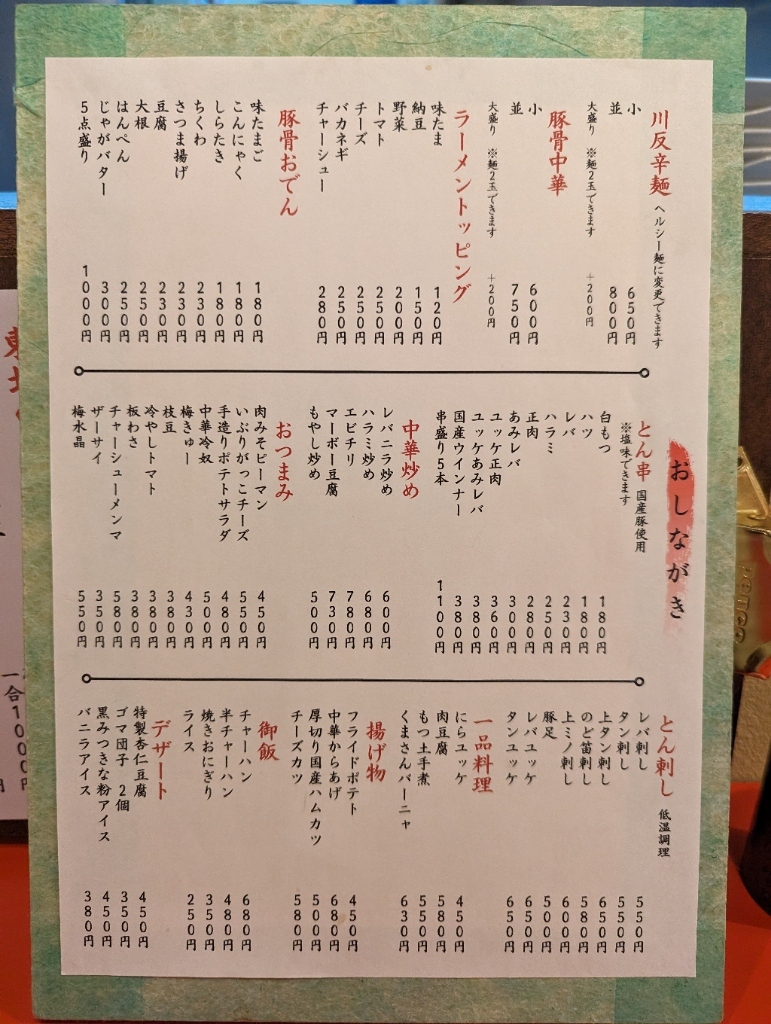 おしながき
川反辛麺 ヘルシー麺に変更できます
小 650円
並 800円
大盛り ※麺2玉できます +200円
豚骨中華
小 600円
並 750円
大盛り ※麺2玉できます +200円
ラーメントッピング
味たま 120円
納豆 150円
野菜 200円
トマト 250円
チーズ 250円
バカネギ 250円
チャーシュー 280円
豚骨おでん
味たまご 180円
こんにゃく 180円
しらたき 180円
ちくわ 230円
さつま揚げ 230円
豆腐 230円
大根 250円
はんぺん 250円
じゃがバター 300円
5点盛り 1000円
とん串 国産豚使用
※塩味できます
白もつ 180円
ハツ 180円
レバ 230円
ハラミ 250円
正肉 280円
あみレバ 300円
ユッケ正肉 360円
ユッケあみレバ 380円
国産ウインナー 380円
串盛り5本 1100円
中華炒め
レバニラ炒め 600円
ハラミ炒め 680円
エビチリ 780円
マーボー豆腐 730円
もやし炒め 500円
おつまみ
肉みそピーマン 450円
いぶりがっこチーズ 550円
手造りポテトサラダ 480円
中華冷奴 500円
梅きゅー 430円
枝豆 380円
冷やしトマト 380円
板わさ 380円
チャーシューメンマ 580円
ザーサイ 350円
梅水晶 550円
とん刺し 低温調理
レバ刺し 550円
タン刺し 550円
上タン刺し 650円
のど笛刺し 580円
上ミノ刺し 600円
豚足 500円
レバユッケ 650円
タンユッケ 650円
一品料理
にらユッケ 450円
肉豆腐 580円
もつ土手煮 550円
くまさんバーニャ 630円
揚げ物
フライドポテト 450円
中華からあげ 680円
厚切り国産ハムカツ 500円
チーズカツ 580円
御飯
チャーハン 680円
半チャーハン 480円
焼きおにぎり 350円
ライス 250円
デザート
特製杏仁豆腐 450円
ゴマ団子 2個 350円
黒みつきな粉アイス 450円
バニラアイス 380円